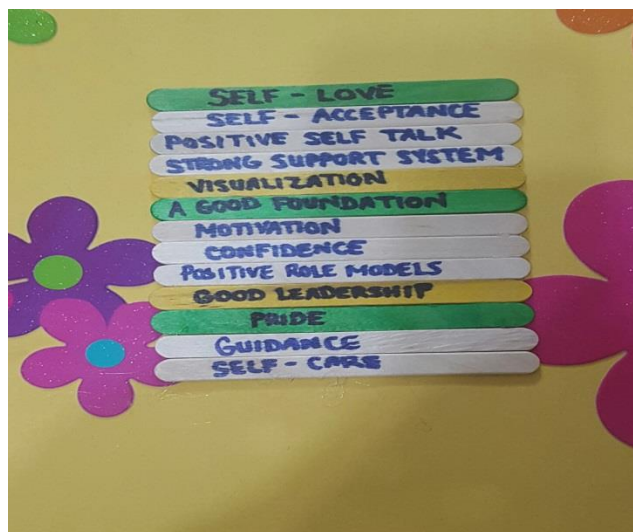 SELF - LOVE
SELF - ACCEPTANCE
POSITIVE SELF TALK
STRONG SUPPORT SYSTEM
VISUALIZATION
A GOOD FOUNDATION
MOTIVATION
CONFIDENCE
POSITIVE ROLE MODELS
GOOD LEADERSHIP
PRIDE
GUIDANCE
SELF - CARE